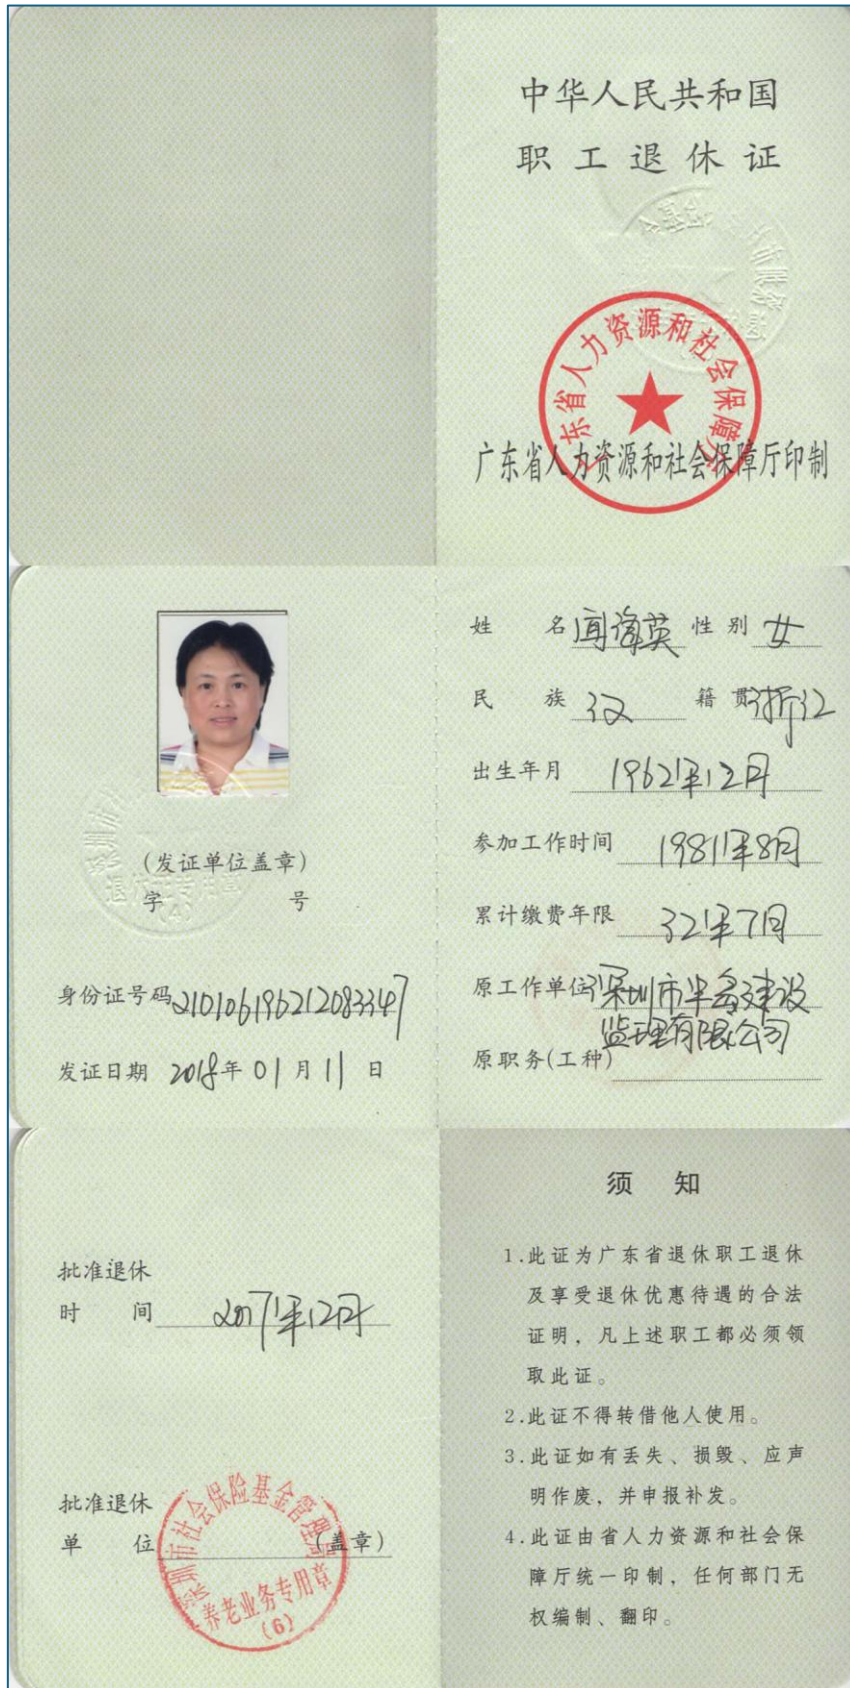 中华人民共和国
职工退休证
广东省人力资源和社会保障厅
广东省人力资源和社会保障厅印制
(发证单位盖章)
字 号
退休证专用章
(4)
身份证号码 210106196212083347
发证日期 2018年01月11日
姓 名 闻 英 性别 女
民 族 汉 籍贯 浙江
出生年月 1962年12月
参加工作时间 1981年8月
累计缴费年限 32年7月
原工作单位 深圳市 建设
监理有限公司
原职务(工种)
批准退休
时 间 2017年12月
批准退休
单 位 (盖章)
深圳市社会保险基金管理局
养老业务专用章
(6)
须 知
1.此证为广东省退休职工退休
及享受退休优惠待遇的合法
证明，凡上述职工都必须领
取此证。
2.此证不得转借他人使用。
3.此证如有丢失、损毁、应声
明作废，并申报补发。
4.此证由省人力资源和社会保
障厅统一印制，任何部门无
权编制、翻印。